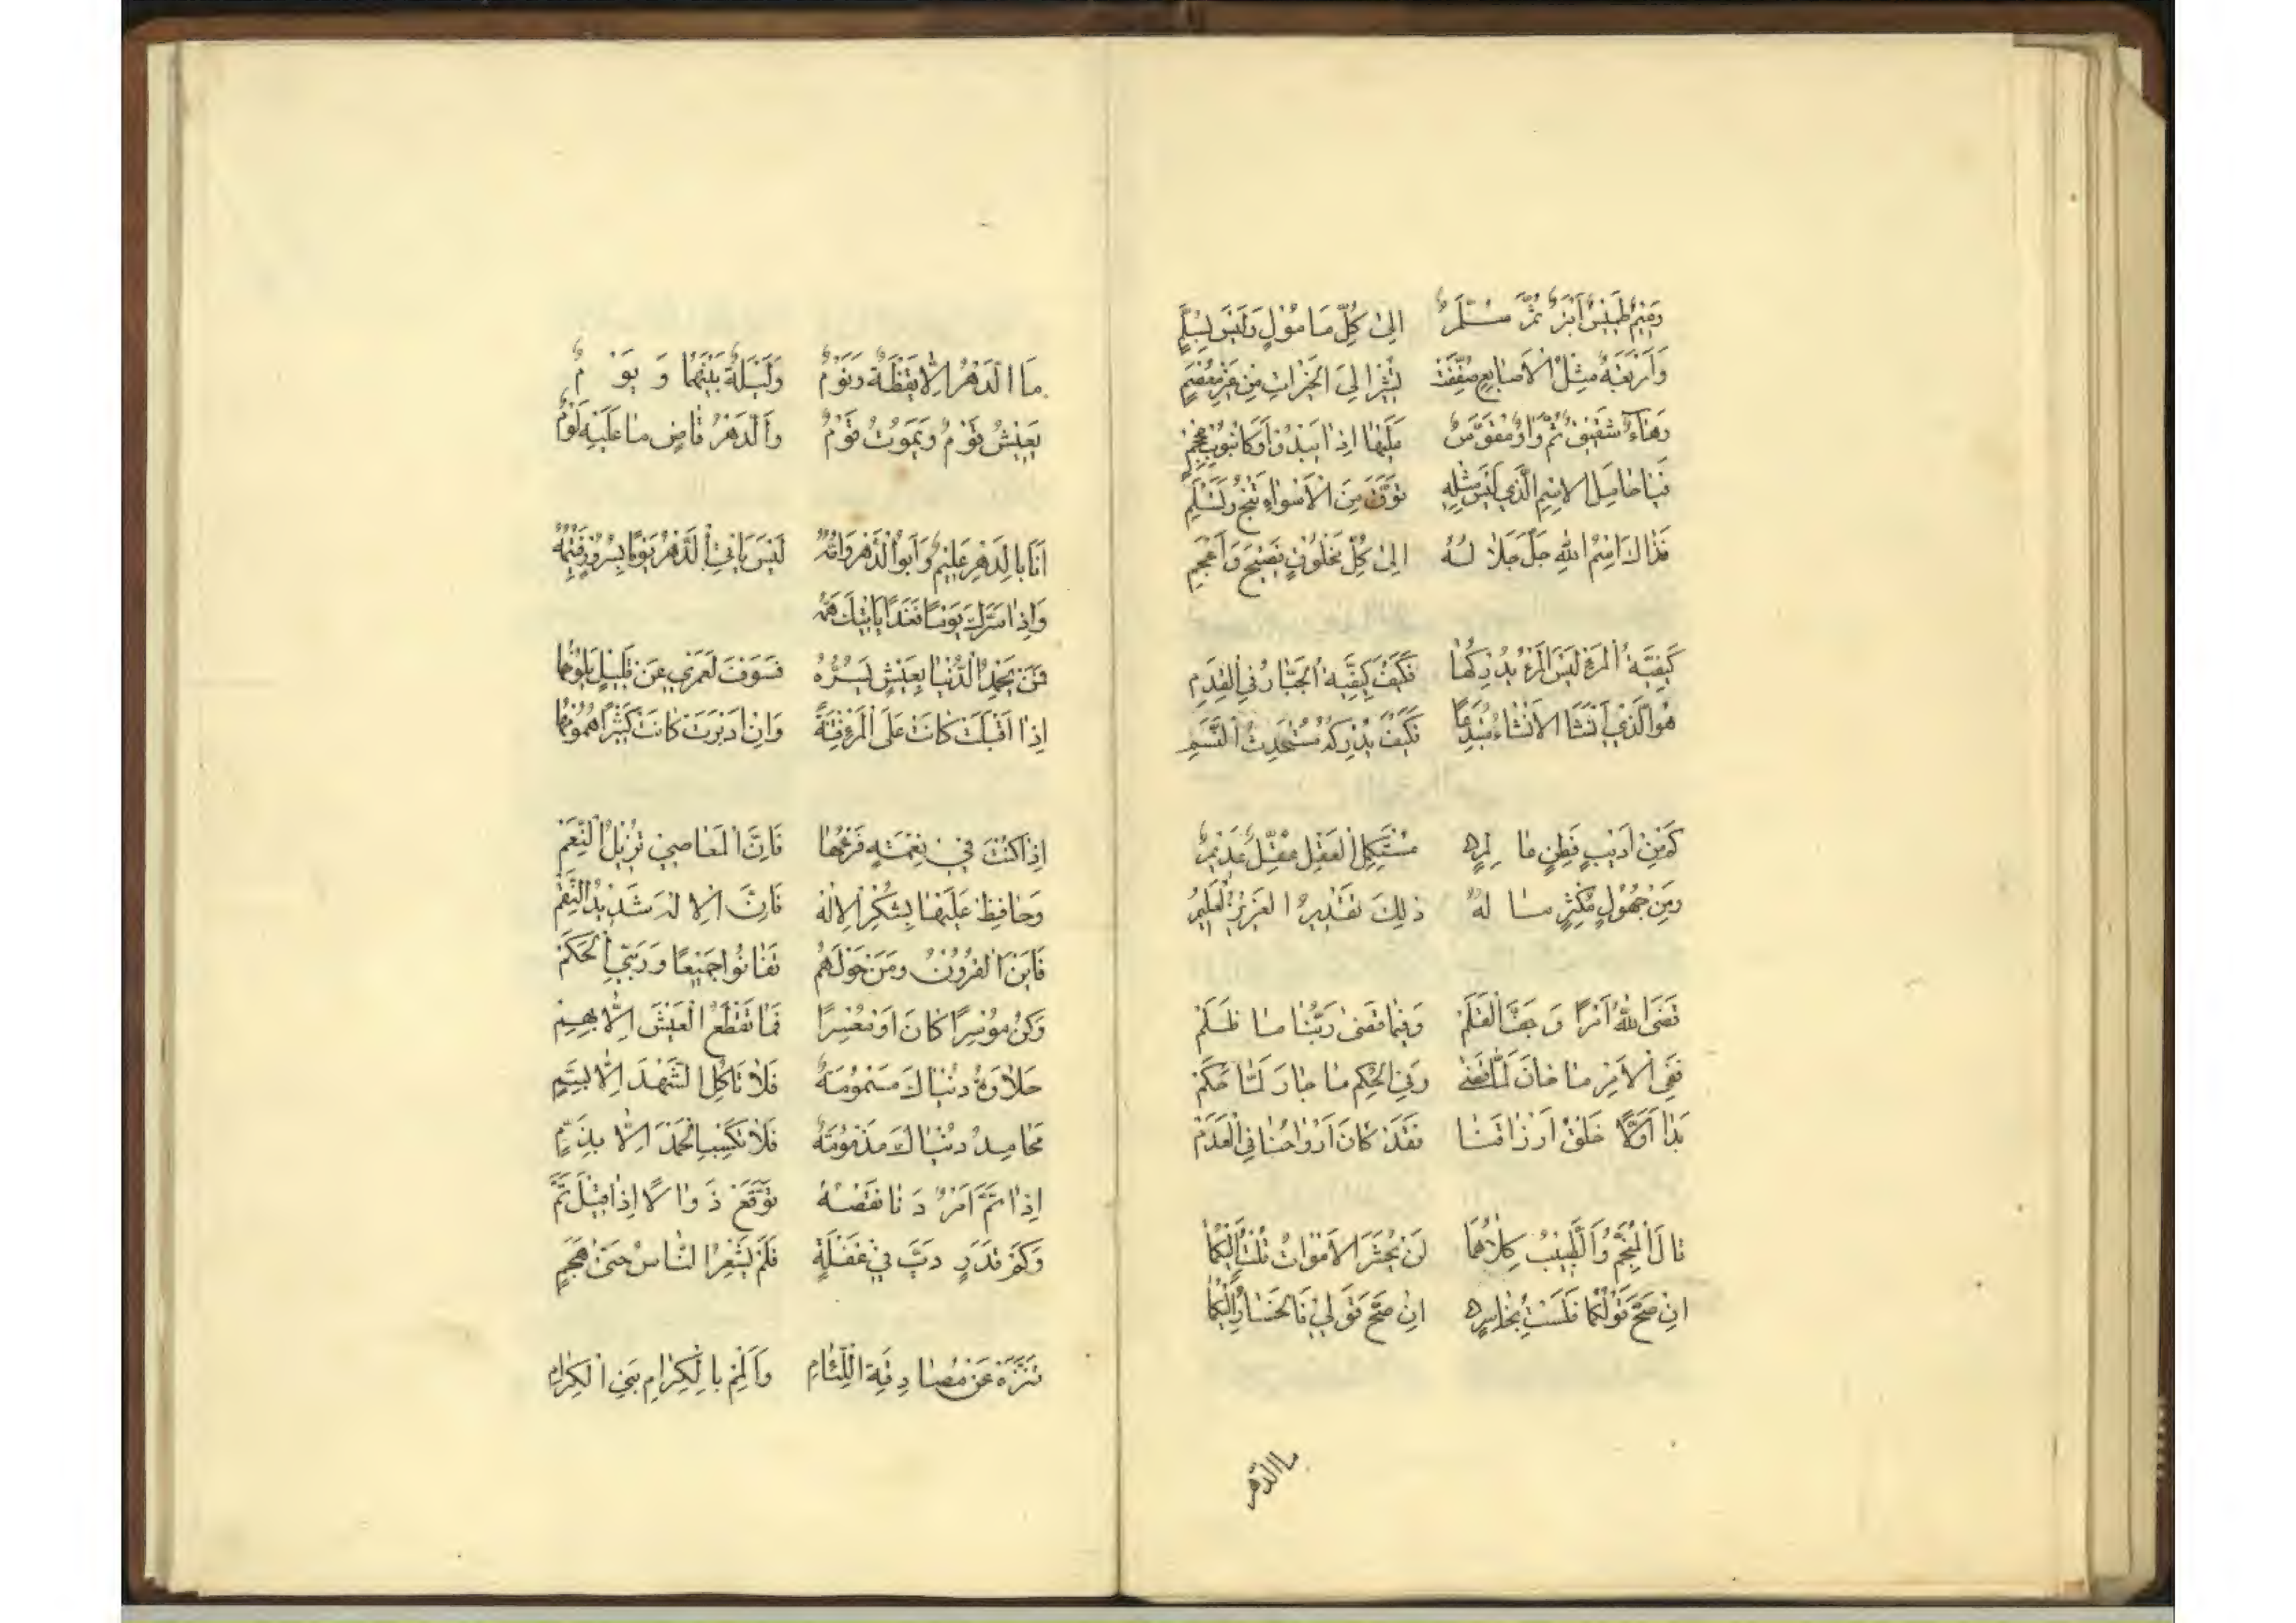 وَمِيمٌ طَمِيسٌ أَبْتَرٌ ثُمَّ سُلَّمٌ الى كُلِّ مَامُولٍ وَلَيْسَ بِسُلَّمٍ
وَاَرْبَعَةٌ مِثْلُ الْاَصابِعِ صُفِّفَتْ تُشيرُ اِلىَ الخَيْراتِ مِن غَيْرِ مِعْصَمٍ
وَهاءٌ شَقيقٌ ثُمَّ وَاوٌ مُقَوَّسٌ
فَيا حامِلَ الاِسْمِ الَّذي لَيْسَ مِثْلُهُ تَوَقَّ مِنَ الْاَسْواءِ تَنْجُ وَتَسْلَمِ
فَذاكَ اسْمُ اللهِ جَلَّ جَلالُهُ الى كُلِّ مَخْلُوقٍ فَصيحٍ وَاَعْجَمِ
كَيْفِيَّةُ الْمَرْءِ لَيْسَ الْمَرْءُ يُدْرِكُها فَكَيْفَ كَيْفِيَّةُ الْجَبَّارِ فىِ الْقِدَمِ
هُوَ الَّذي اَنْشَأَ الْاَشْياءَ مُبْتَدِعًا فَكَيْفَ يُدْرِكُهُ مُسْتَحْدَثُ النَّسَمِ
كَمْ مِنْ اَديبٍ فَطِنٍ عالِمٍ مُسْتَكْمِلِ الْعَقْلِ مُقِلٍّ عَديمٍ
وَمِنْ جَهُولٍ مُكْثِرٍ مالَهُ ذلِكَ تَقْديرُ الْعَزيزِ الْعَليمِ
قَضَى اللهُ اَمْرًا وَجَفَّ الْقَلَمْ وَفيما قَضى رَبُّنا ما ظَلَمْ
فَفِي الْاَمْرِ ما خانَ لَمَّا قَضى وَفىِ الْحُكْمِ ما جارَ لَمَّا حَكَمْ
بَدا اَوَّلًا خَلْقُ اَرْزاقِنا فَقَدْ كانَ اَرْواحُنا فىِ الْعَدَمْ
قالَ الْمُنَجِّمُ وَالطَّبيبُ كِلاهُما لَنْ يُحْشَرَ الْاَمْواتُ قُلْتُ اِلَيْكُما
اِنْ صَحَّ قَوْلُكُما فَلَسْتُ بِخاسِرٍ اِنْ صَحَّ قَوْلي فَالْخَسارُ اِلَيْكُما
ما الدَّهْرُ
مَا الدَّهْرُ اِلَّا يَقْظَةٌ وَنَوْمُ وَلَيْلَةٌ بَيْنَهُما وَيَوْمُ
يَعيشُ قَوْمٌ وَيَمُوتُ قَوْمُ وَالدَّهْرُ قاضٍ ما عَلَيْهِ لَوْمُ
اَنَا بِالدَّهْرِ عَليمٌ وَاَبُوا الدَّهْرِ وَاُمُّهُ لَيْسَ يَاْتي الدَّهْرُ يَوْمًا بِسُرُورٍ فَيُتِمُّهُ
وَاِذا سَرَّكَ يَوْمًا فَغَدًا يَاْتيكَ هَمُّهُ
فَمَنْ يَحْمَدِ الدُّنْيا بِعَيْشٍ يَسُرُّهُ فَسَوْفَ لَعَمْري عَنْ قَليلٍ يَلُومُها
اِذا اَقْبَلَتْ كانَتْ عَلَى الْمَرْءِ فِتْنَةً وَاِنْ اَدْبَرَتْ كانَتْ كَثيرًا هُمُومُها
اِذا كُنْتَ في نِعْمَةٍ فَارْعَها فَاِنَّ الْمَعاصي تُزيلُ النِّعَمْ
وَحافِظْ عَلَيْها بِشُكْرِ الْاِلٰهِ فَاِنَّ الْاِلهَ شَديدُ النِّقَمْ
فَاَيْنَ الْقُرُونُ وَمَنْ حَوْلَهُمْ تَفانَوْا جَميعًا وَرَبّي الْحَكَمْ
وَكُنْ مُوسِرًا كانَ اَوْ مُعْسِرًا فَما تَقْطَعُ الْعَيْشَ اِلَّا بِهَمٍّ
حَلاوَةُ دُنْياكَ مَسْمُومَةٌ فَلا تَاْكُلِ الشَّهْدَ اِلَّا بِسَمٍّ
مَحامِدُ دُنْياكَ مَذْمُومَةٌ فَلا تَكْسِبِ الْحَمْدَ اِلَّا بِذَمٍّ
اِذا تَمَّ اَمْرٌ دَنا نَقْصُهُ تَوَقَّعْ زَوالًا اِذا قيلَ تَمَّ
وَكَمْ قَدَرٍ دَبَّ في غَفْلَةٍ فَلَمْ يَشْعُرِ النَّاسُ حَتّى هَجَمَ
تَنَزَّهْ عَنْ مُصادَقَةِ اللِّئامِ وَاَلْمِمْ بِالْكِرامِ بَنِي الْكِرامِ